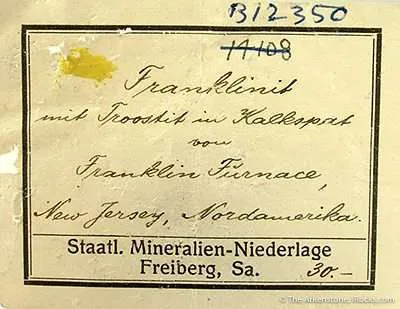 B12350
14108
Franklinit
mit Troostit in Kalkspat
von
Franklin Furnace,
New Jersey, Nordamerika.
Staatl. Mineralien-Niederlage
Freiberg, Sa. 30.-
© The Arkenstone, iRocks.com